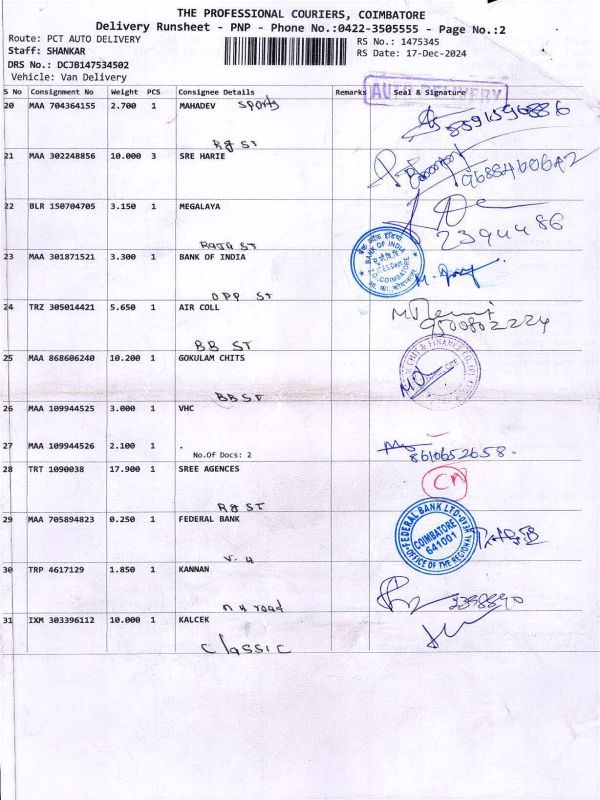 THE PROFESSIONAL COURIERS, COIMBATORE
Delivery Runsheet - PNP - Phone No.:0422-3505555 - Page No.:2
Route: PCT AUTO DELIVERY
RS No.: 1475345
Staff: SHANKAR
RS Date: 17-Dec-2024
DRS No.: DCJB147534502
Vehicle: Van Delivery
AUTO DELIVERY
S No Consignment No Weight PCS Consignee Details Remarks Seal & Signature
20 MAA 704364155 2.700 1 MAHADEV Sports
RG ST
21 MAA 302248856 10.000 3 SRE HARIE
22 BLR 150704705 3.150 1 MEGALAYA
2394486
RAJA ST
23 MAA 301871521 3.300 1 BANK OF INDIA
बैंक ऑफ़ इंडिया
BANK OF INDIA
COIMBATORE
OPP ST
24 TRZ 305014421 5.650 1 AIR COLL
9500802224
BB ST
25 MAA 868606240 10.200 1 GOKULAM CHITS
CHIT & FINANCE CO.(P) LTD
BB ST
26 MAA 109944525 3.000 1 VHC
27 MAA 109944526 2.100 1 .
No.Of Docs: 2
8610652658.
28 TRT 1090038 17.900 1 SREE AGENCES
CN
RG ST
29 MAA 705894823 0.250 1 FEDERAL BANK
FEDERAL BANK LTD
COIMBATORE
641001
OFFICE OF THE REGIONAL HEAD
V. H
30 TRP 4617129 1.850 1 KANNAN
n H road
31 IXM 303396112 10.000 1 KALCEK
classic